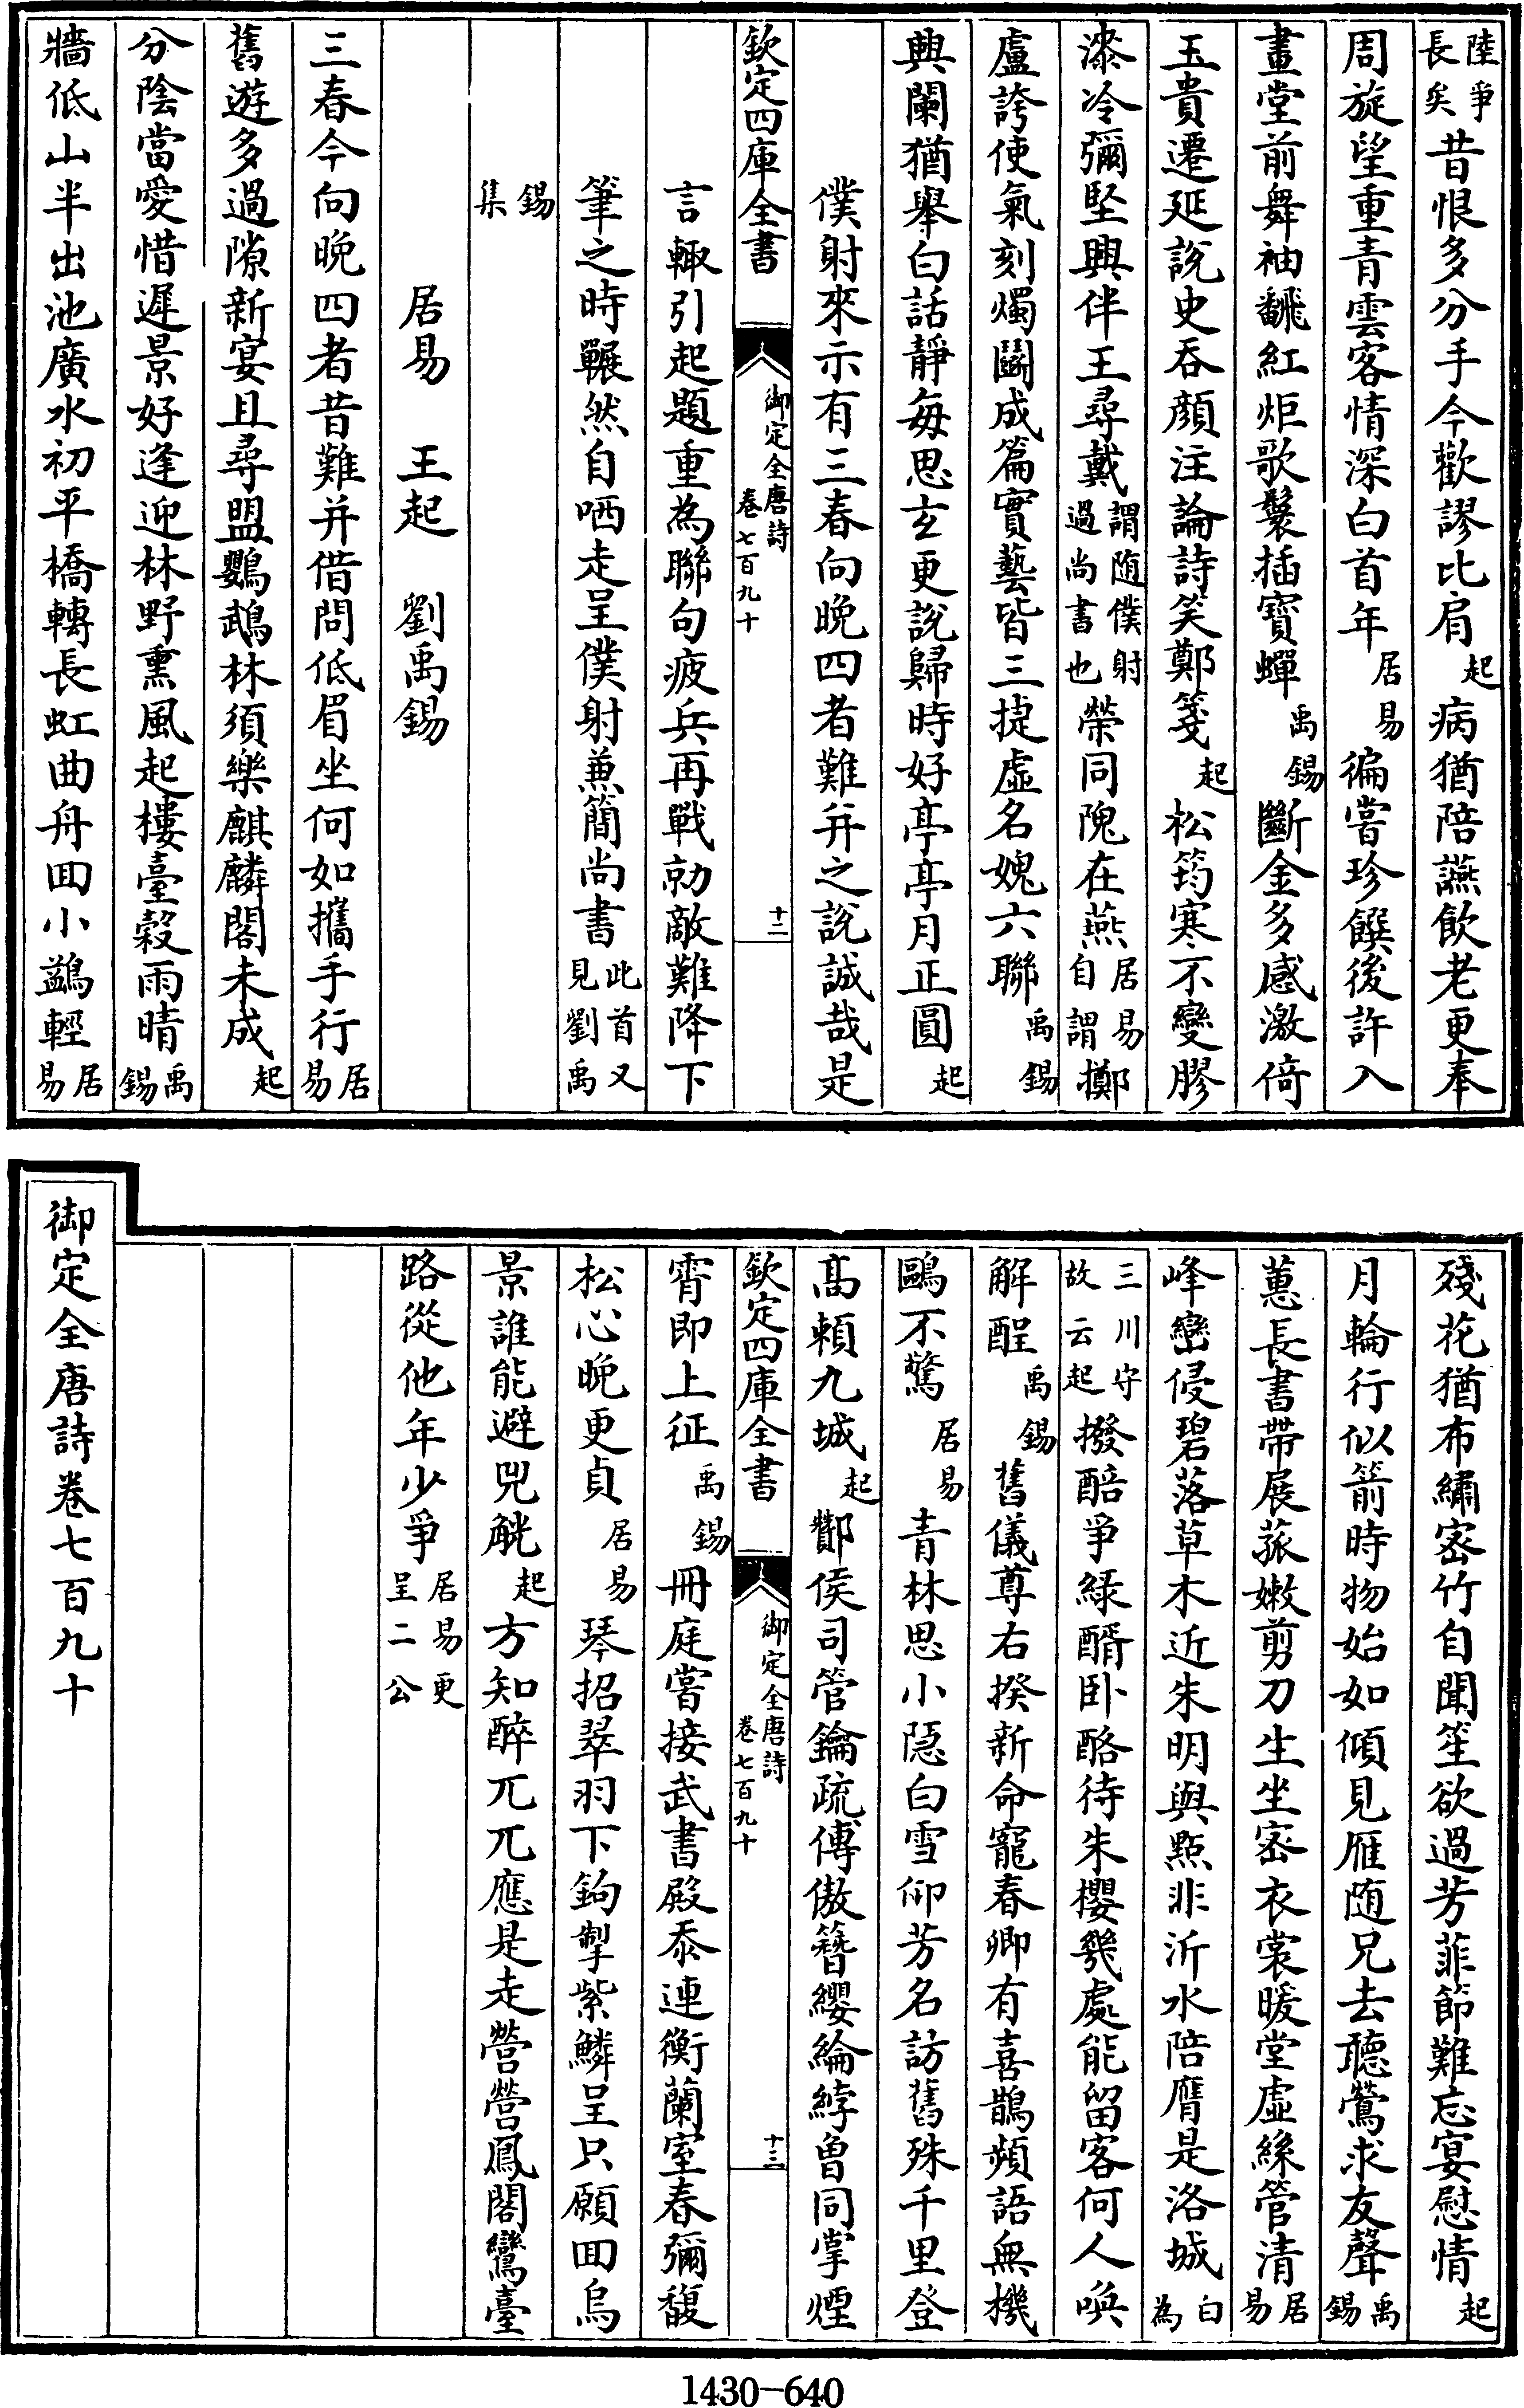 陸爭長矣昔恨多分手今歡謬比肩起病猶陪讌飲老更奉
周旋望重青雲客情深白首年居易徧嘗珍饌後許入
畫堂前舞袖飜紅炬歌鬟插寶蟬禹錫斷金多感激倚
玉貴遷延說史吞顏注論詩笑鄭箋起松筠寒不變膠
漆冷彌堅興伴王尋戴謂隨僕射過尚書也榮同隗在燕居易自謂擲
盧誇使氣刻燭鬬成篇實藝皆三捷虛名媿六聯禹錫
興闌猶舉白話靜每思玄更說歸時好亭亭月正圓起
僕射來示有三春向晚四者難并之說誠哉是
欽定四庫全書 御定全唐詩 卷七百九十 十二
言輙引起題重為聯句疲兵再戰勍敵難降下
筆之時囅然自哂走呈僕射兼簡尚書此首又見劉禹
錫集
居易 王起 劉禹錫
三春今向晚四者昔難并借問低眉坐何如攜手行居易
舊遊多過隙新宴且尋盟鸚鵡林須樂麒麟閣未成起
分陰當愛惜遲景好逢迎林野熏風起樓臺穀雨晴禹錫
牆低山半出池廣水初平橋轉長虹曲舟回小鷁輕居易
殘花猶布繡密竹自聞笙欲過芳菲節難忘宴慰情起
月輪行似箭時物始如傾見雁隨兄去聽鶯求友聲禹錫
蕙長書帶展菰嫩剪刀生坐密衣裳暖堂虛絲管清居易
峰巒侵碧落草木近朱明與點非沂水陪膺是洛城白為
三川守故云起撥醅爭綠醑臥酪待朱櫻幾處能留客何人喚
解酲禹錫舊儀尊右揆新命寵春卿有喜鵲頻語無機
鷗不驚居易青林思小隱白雪仰芳名訪舊殊千里登
高賴九城起酇侯司管鑰疏傅傲簪纓綸綍曾同掌煙
欽定四庫全書 御定全唐詩 卷七百九十 十三
霄即上征禹錫冊庭嘗接武書殿忝連衡蘭室春彌馥
松心晚更貞居易琴招翠羽下鉤掣紫鱗呈只願回烏
景誰能避兕觥起方知醉兀兀應是走營營鳳閣鸞臺
路從他年少爭居易更呈二公
御定全唐詩卷七百九十
1430-640